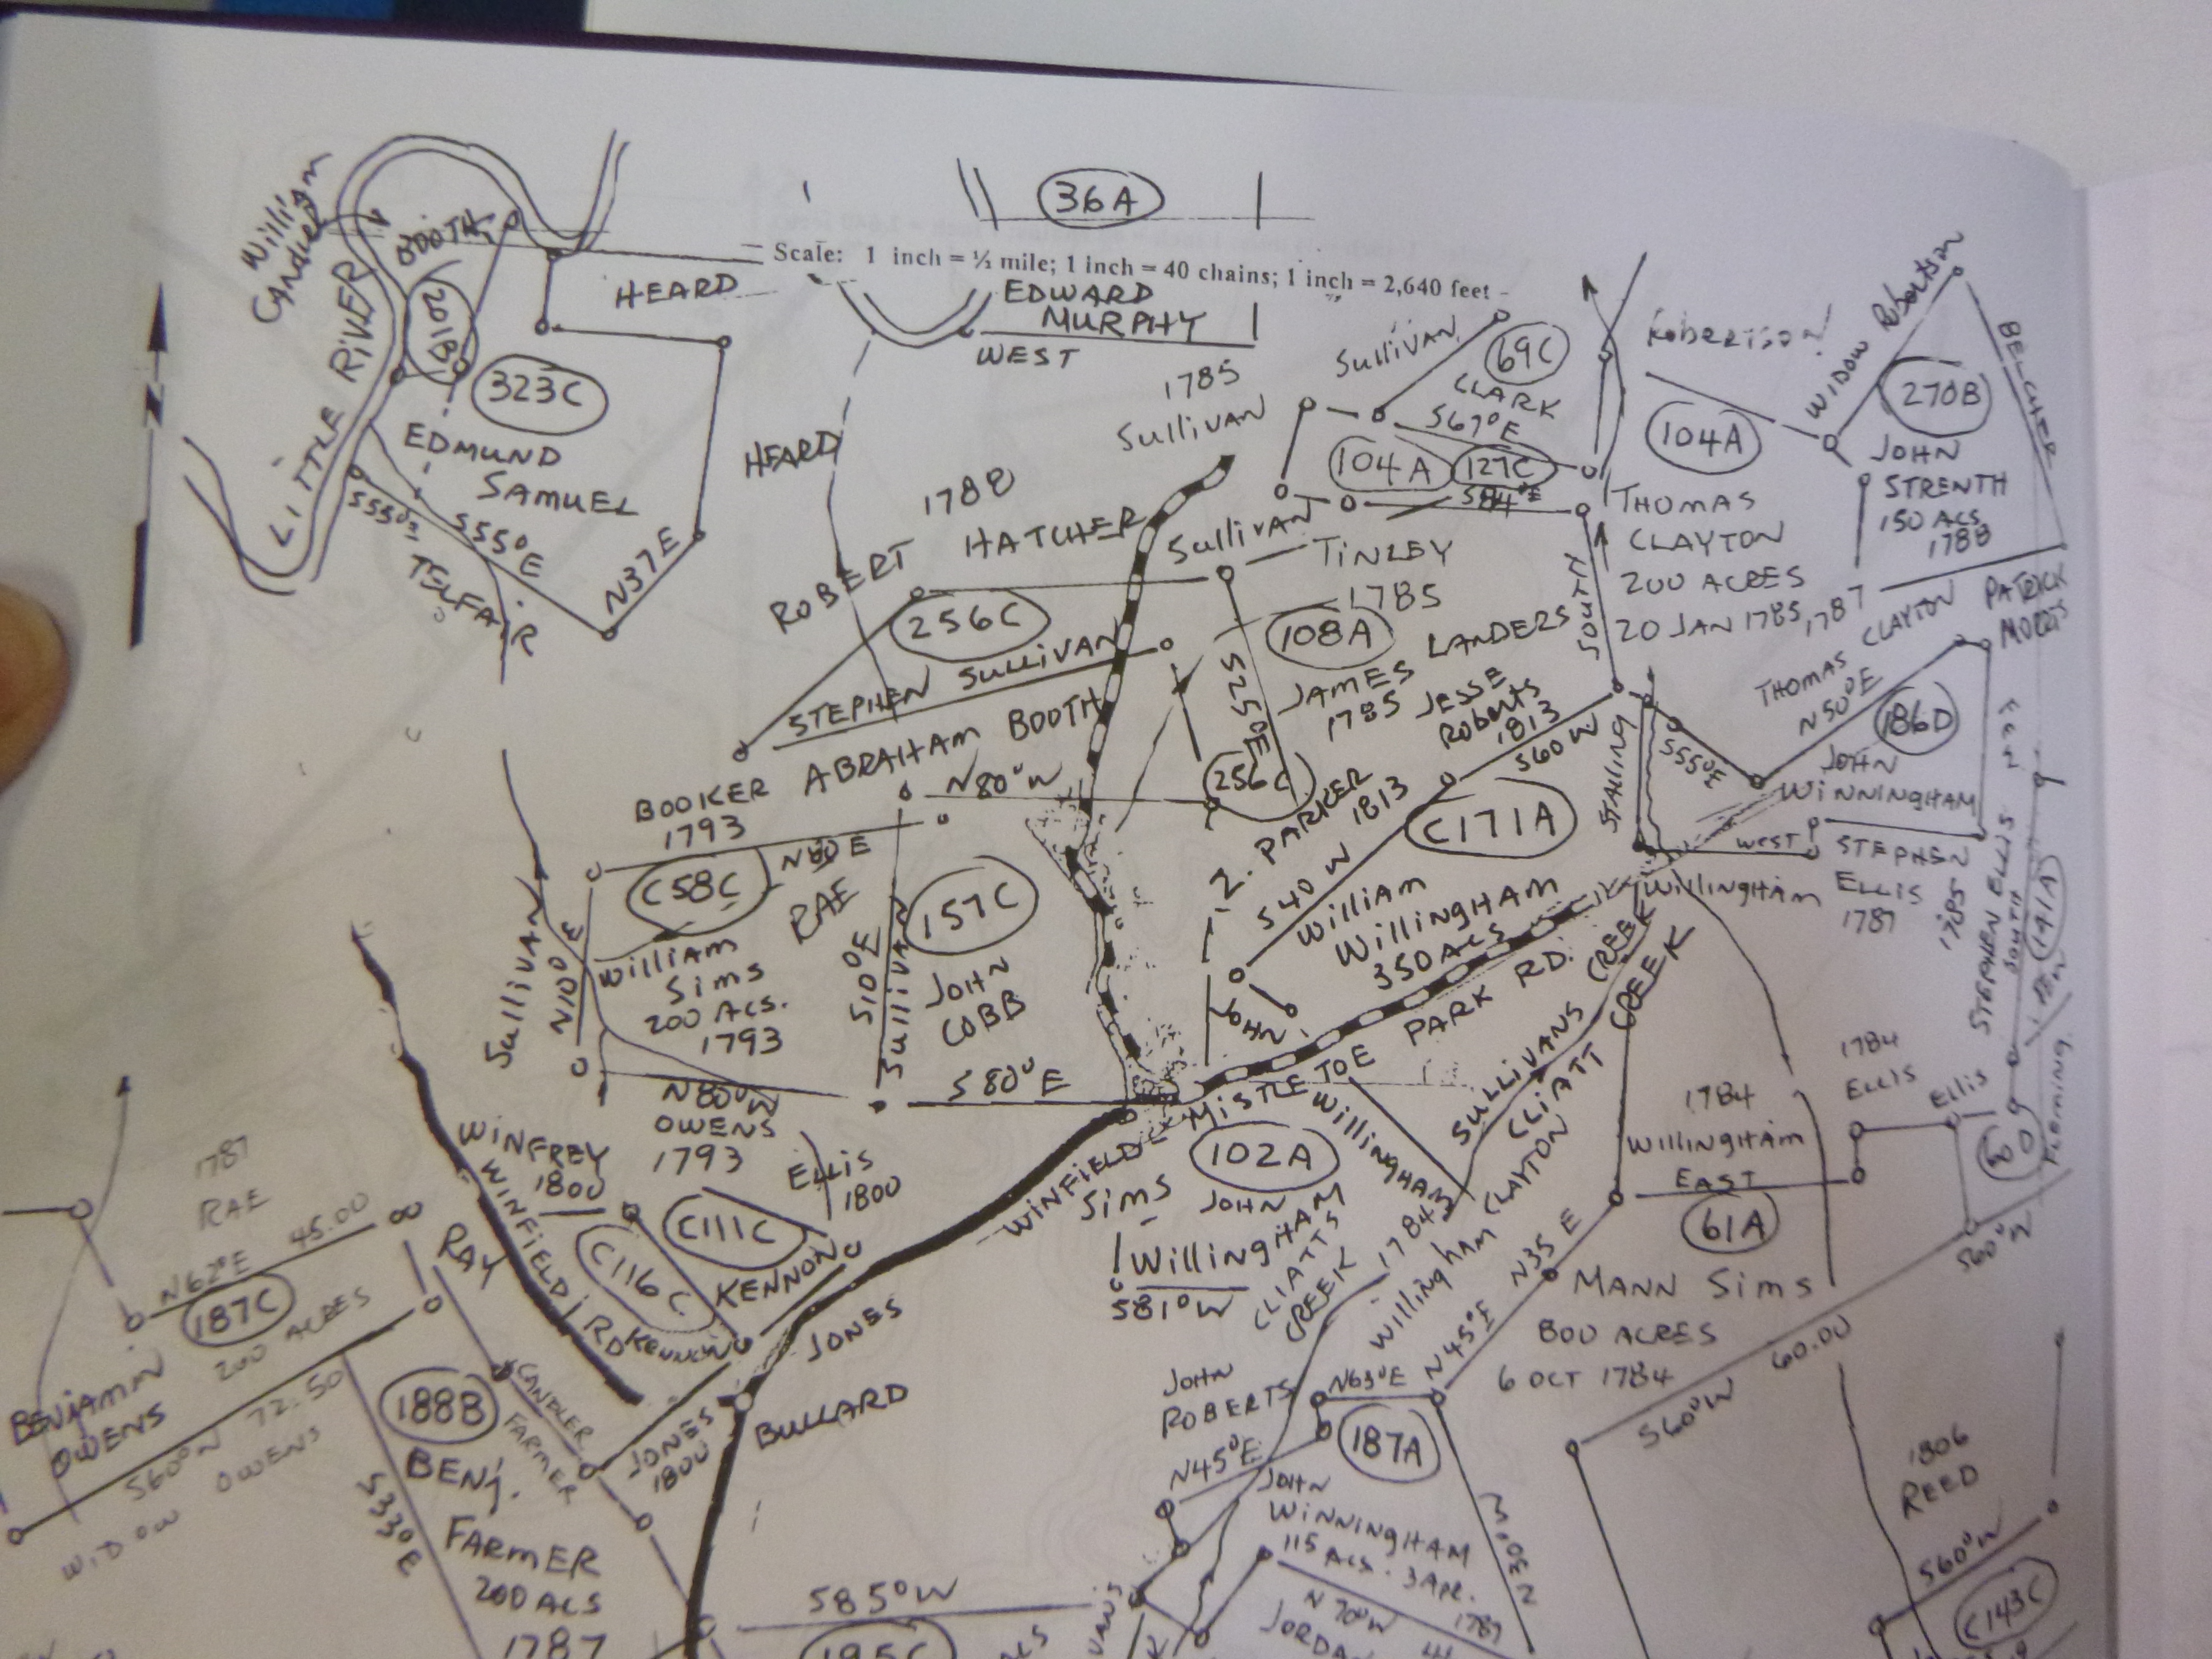 36A
Scale: 1 inch = ½ mile; 1 inch = 40 chains; 1 inch = 2,640 feet
William
BOOTH
201B
LITTLE RIVER
HEARD
323C
EDMUND
SAMUEL
S55°E
S55°E
TELFAIR
N37E
HEARD
N
EDWARD
MURPHY
WEST
1785
Sullivan
Sullivan
69C
CLARK
S67°E
104A
127C
S84°E
Robertson
WIDOW Robertson
BELCHER
270B
104A
JOHN
STRENTH
150 ACS
1788
THOMAS
CLAYTON
200 ACRES
20 JAN 1785, 1787
SOUTH
1788
ROBERT HATCHER
Sullivan
TINLEY
1785
256C
STEPHEN SULLIVAN
108A
JAMES LANDERS
1785
S25°E
JESSE
Roberts
1813
S60W
THOMAS CLAYTON
N50°E
PATRICK
186D
JOHN
WINNINGHAM
S55°E
STALLING
BOOKER ABRAHAM BOOTH
1793
N80°W
256C
Z. PARKER
1813
C171A
S40W
WEST
STEPHEN
ELLIS
1787
WILLINGHAM
STEPHEN ELLIS
1785
SOUTH
191A
C58C
N80E
RAE
157C
JOHN
COBB
S10°E
Sullivan
Sullivan
N10°E
William
Sims
200 ACS.
1793
WILLIAM
WILLINGHAM
350 ACS
JOHN
S80°E
WINFIELD-MISTLETOE PARK RD.
SULLIVANS CREEK
CLIATT CREEK
N80°W
OWENS
1793
WINFREY
1800
ELLIS
1800
C111C
C116C
KENNON
KENNON
WINFIELD RD
102A
Sims
JOHN
Willingham
S81°W
WILLINGHAM
CLIATTS
CREEK
1784
Willingham
CLAYTON
1784
WILLINGHAM
EAST
61A
1784
ELLIS
Ellis
Fleming
MANN Sims
800 ACRES
6 OCT 1784
N35E
N45°E
S60°W 60.00
1787
RAE
N62°E 45.00
187C
200 ACRES
BENJAMIN
OWENS
S60°W 72.50
WIDOW OWENS
RAY
188B
BENJ.
FARMER
200 ACS
1787
S33°E
CANDLER
FARMER
JONES
1800
JONES
BULLARD
JOHN
ROBERTS
N63°E
187A
N45°E
JOHN
WINNINGHAM
115 ACS. 3 APR.
1787
N70°W
N30°W
S85°W
195C
1806
REED
S60°W
C143C